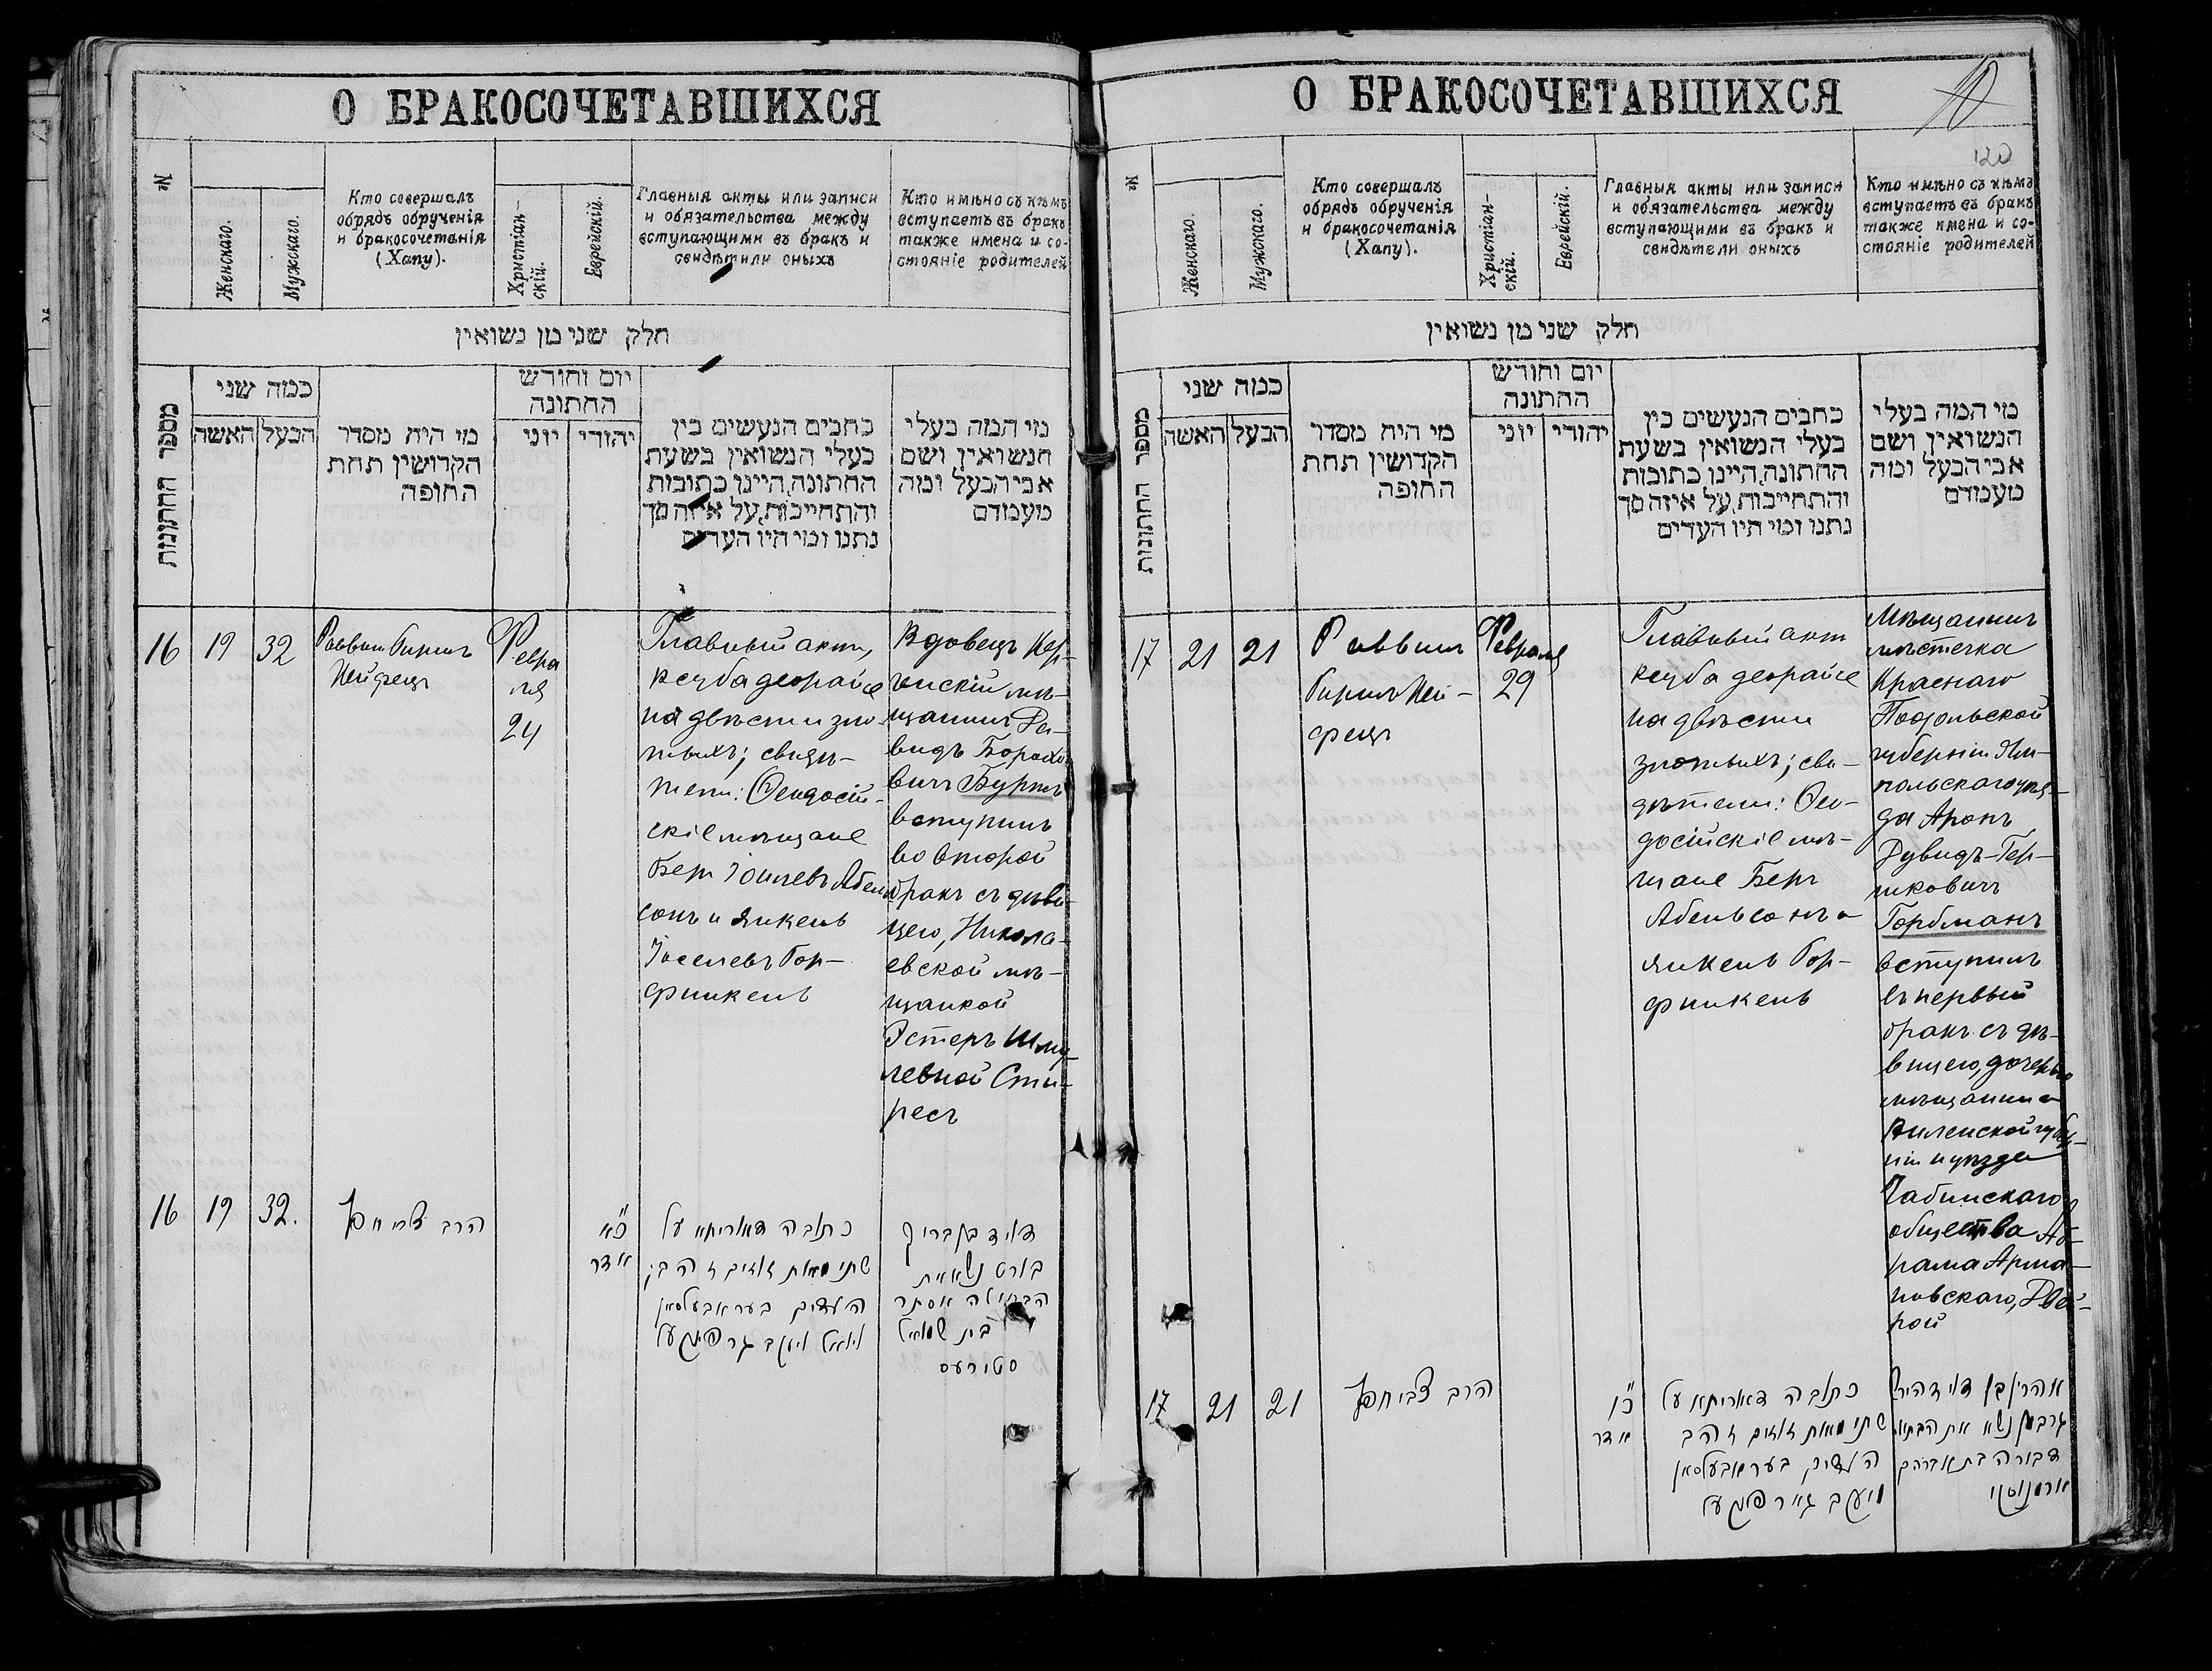 О БРАКОСОЧЕТАВШИХСЯ
№
Женскаго.
Мужскаго.
Кто совершалъ
обрядъ обрученія
и бракосочетанія
(Хапу).
Христіан-
скій.
Еврейскій.
Главныя акты или записи
и обязательства между
вступающими въ бракъ и
свидѣтили оныхъ
Кто имѣно съ кѣмъ
вступаетъ въ бракъ
также имена и со-
стояніе родителей
חלק שני מן נשואין
מספר החתונות
כמה שני
האשה
הבעל
מי היה מסדר
הקדושין תחת
החופה
יום וחודש
החתונה
יוני
יהודי
כתבים הנעשים בין
בעלי הנשואין בשעת
החתונה, היינו כתובות
והתחייבות, על איזה סך
נתנו ומי היו העדים
מי המה בעלי
הנשואין ושם
אבי הבעל ומה
מעמדם
16
19
32
Раввинъ
Февра
ля
24
Главный акт,
кецуба деорайсе
на двѣсти зло-
тыхъ; свидѣ-
тели: Ѳеодосій-
скіе мѣщане
Бер Іоилевъ Абель
сонъ и Янкель
Іоселевъ Гор-
финкель
Вдовецъ Кер-
ченскій мѣ-
щанинъ Да-
видъ Борохо
вичъ Буртъ
вступилъ
во второй
бракъ съ дѣви-
цею, Никола-
евской мѣ-
щанкой
Эстеръ Шму-
левной Сти-
ресъ
16
19
32.
הרב צבי
כ"א
אדר
כתובה דאוריתא על
שתי מאות זוזים זהב
העדים בער אבעלסאן
יואל ויעקב גרפינקעל
דוד בן ברוך
בורט נשא את
הבתולה אסתר
בת שמואל
סטירעס
О БРАКОСОЧЕТАВШИХСЯ
10
120
№
Женскаго.
Мужскаго.
Кто совершалъ
обрядъ обрученія
и бракосочетанія
(Хапу).
Христіан-
скій.
Еврейскій.
Главныя акты или записи
и обязательства между
вступающими въ бракъ и
свидѣтели оныхъ
Кто имѣно съ кѣмъ
вступаетъ въ бракъ
также имена и со-
стояніе родителей
חלק שני מן נשואין
מספר החתונות
כמה שני
האשה
הבעל
מי היה מסדר
הקדושין תחת
החופה
יום וחודש
החתונה
יוני
יהודי
כתבים הנעשים בין
בעלי הנשואין בשעת
החתונה, היינו כתובות
והתחייבות, על איזה סך
נתנו ומי היו העדים
מי המה בעלי
הנשואין ושם
אבי הבעל ומה
מעמדם
17
21
21
Раввинъ
Февраля
29
Главный акт
кецуба деорайсе
на двѣсти
злотыхъ; сви-
дѣтели: Ѳео-
досійскіе мѣ-
щане Беръ
Абельсонъ и
Янкель Гор-
финкель
Мѣщанинъ
мѣстечка
Краснаго
Подольской
губерніи Ям-
польскаго уѣз-
да Аронъ
Дувидъ-Гер-
шковичъ
Горбманъ
вступилъ
въ первый
бракъ съ дѣ-
вицею, дочерью
мѣщанина
Виленской губер-
ніи и уѣзда
общества Аб-
рама Арша-
новскаго, Двой-
рой
17
21
21
הרב צבי
כ"ו
אדר
כתובה דאוריתא על
שתי מאות זוזים זהב
העדים בער אבעלסאן
ויעקב גארפינקעל
אהרן בן דוד הירש
גרבמן נשא את הבתולה
דבורה בת אברהם